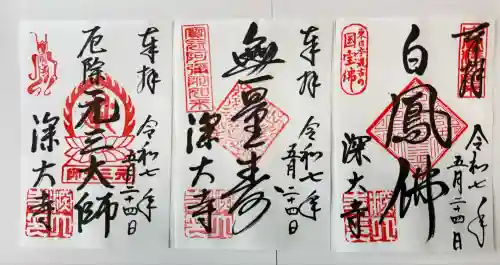 奉拝
令和七年
五月二十四日
厄除元三大師
元三大師
深大寺
奉拝
令和七年
五月二十四日
無量寿
寳冠阿弥陀如来
深大寺
奉拝
令和七年
五月二十四日
白鳳佛
国宝佛
深大寺